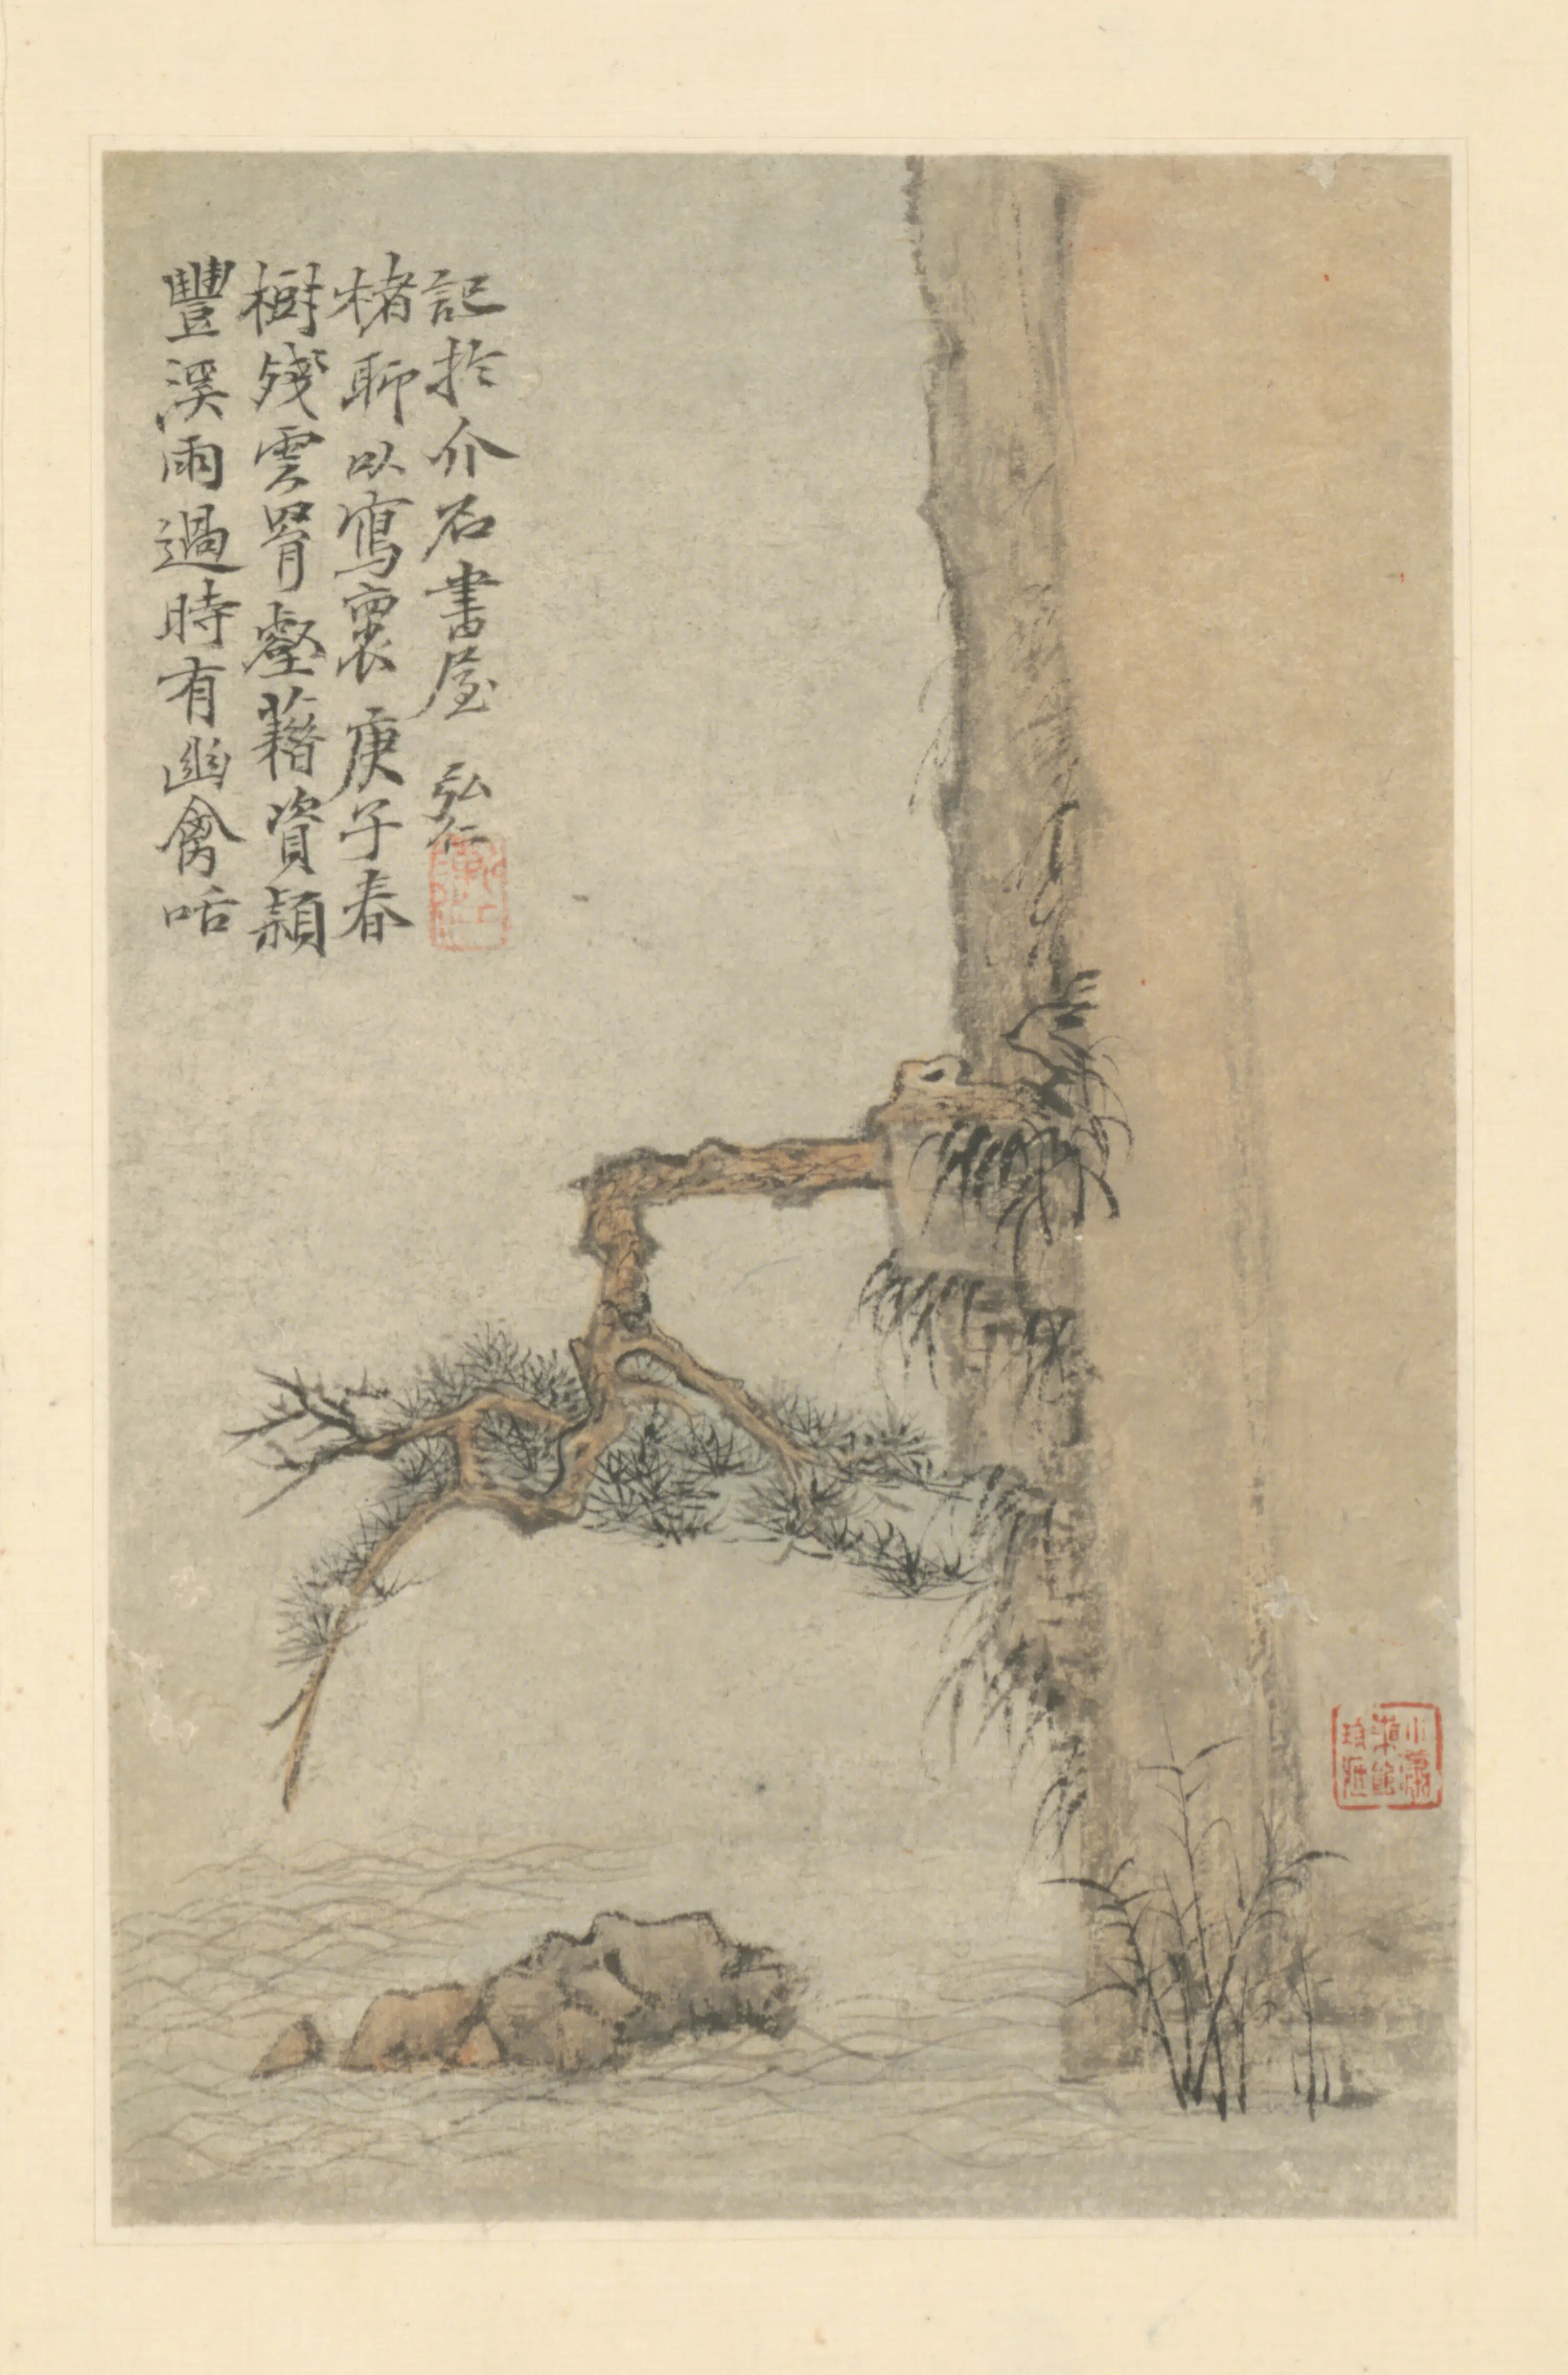 豐溪雨過時有幽禽咶
樹殘雲罥壑藉資穎
楮聊以寫褱庚子春
記於介石書屋 弘仁
小瀟
湘館
珍藏